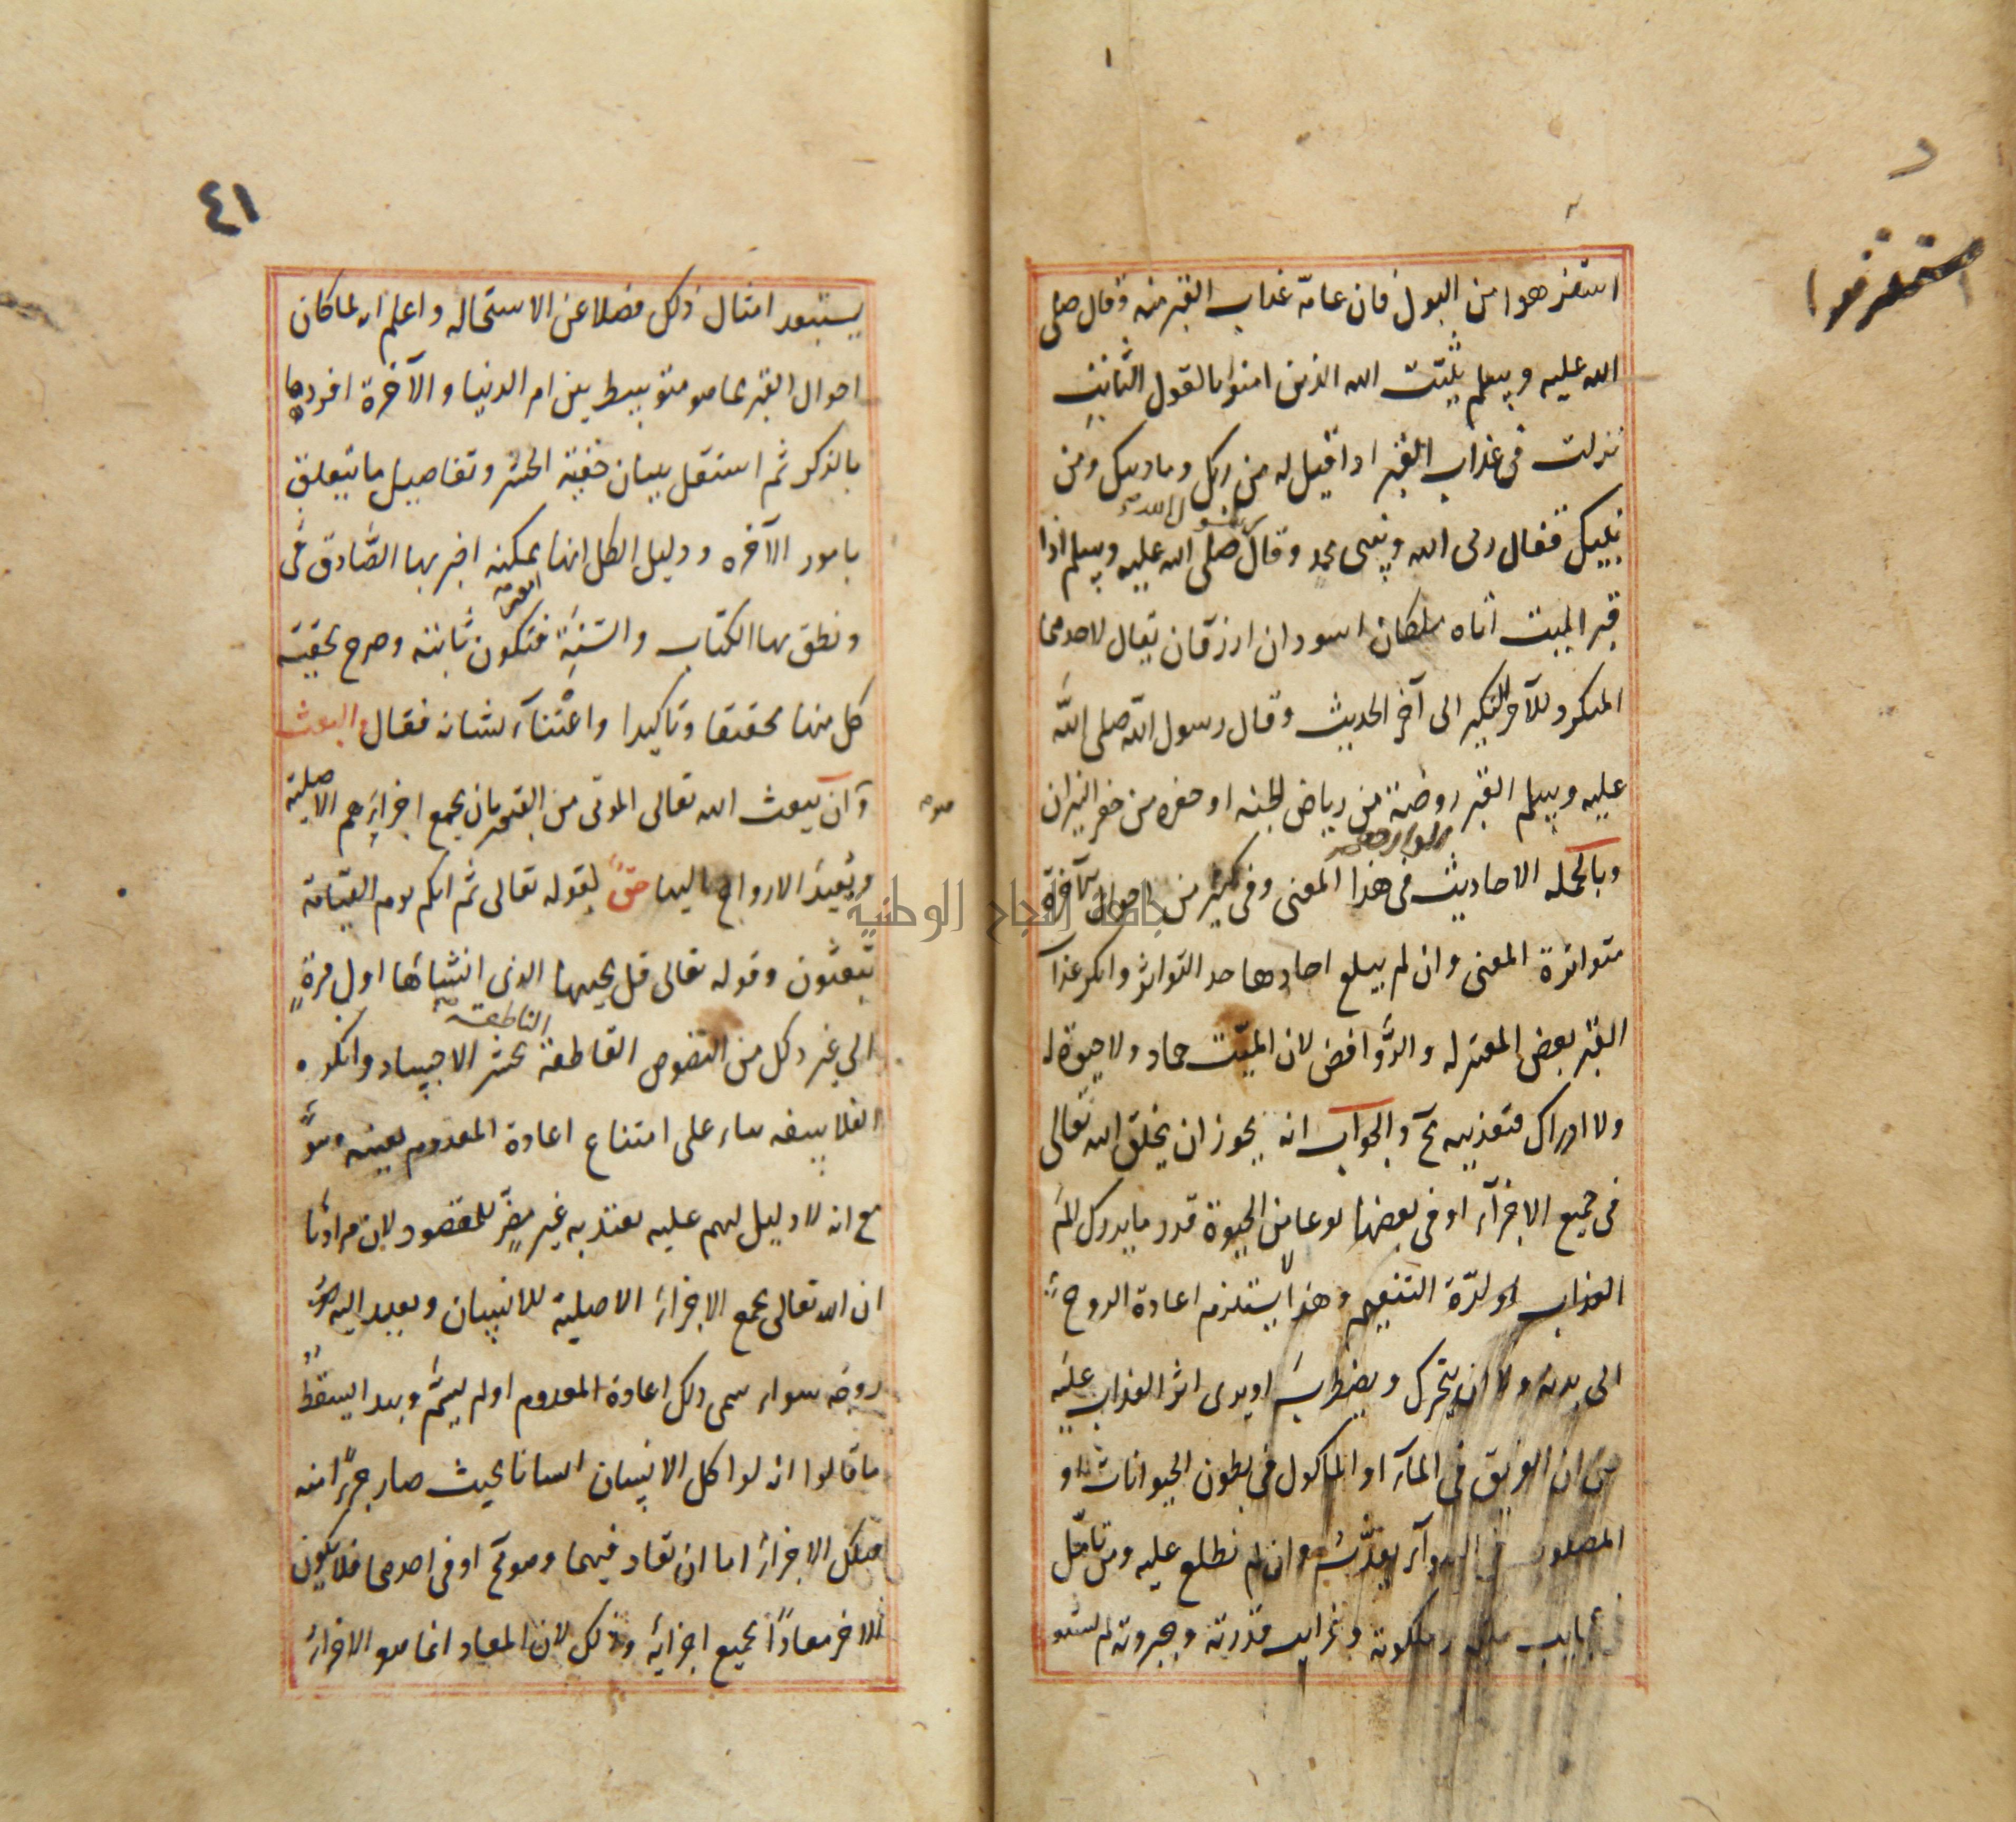 استنزهوا
استنزهوا من البول فان عامة عذاب القبر منه وقال صلى
الله عليه وسلم يثبت الله الذين امنوا بالقول الثابت
نزلت فى عذاب القبر اذا قيل له من ربك وما دينك ومن
نبيك فقال ربى الله ونبيى محمد وقال صلى الله عليه وسلم اذا
قبر الميت اتاه ملكان اسودان ازرقان يقال لاحدهما
المنكر وللآخر النكير الى آخر الحديث وقال رسول الله صلى الله
عليه وسلم القبر روضة من رياض الجنه او حفره من حفر النيران
وبالجمله الاحاديث فى هذا المعنى وفى كثير من احوال الآخرة
متواترة المعنى وان لم يبلغ احادها حد التواتر وانكر عذاب
القبر بعض المعتزله والروافض لان الميت جماد ولا حيوة له
ولا ادراك فتعذيبه مح والجواب انه يجوز ان يخلق الله تعالى
فى جميع الاجزآء او فى بعضها نوعا من الحيوة قدر ما يدرك الم
العذاب او لذة التنعيم وهذا لا يستلزم اعادة الروح
الى بدنه ولا ان يتحرك ويضطرب او يرى اثر العذاب عليه
حتى ان الغريق فى المآء او الماكول فى بطون الحيوانات او
المصلوب فى الهوآء يعذب وان لم نطلع عليه ومن تامل
فى عجايب ملكه وملكوته وغرايب قدرته وجبروته لم
٤١
يستبعد امثال ذلك فضلا عن الاستحاله واعلم انه لما كان
احوال القبر مما هو متوسط بين امر الدنيا والآخرة افردها
بالذكر ثم اشتغل ببيان حقية الحشر وتفاصيل ما يتعلق
بامور الآخره ودليل الكل انها امور ممكنه اخبر بها الصادق
ونطق بها الكتاب والسنة فتكون ثابته وصرح بحقية
كل منها تحقيقا وتاكيدا واعتنآء بشانه فقال والبعث
وهو ان يبعث الله تعالى الموتى من القبور بان يجمع اجزاءهم الاصلية
ويعيد الارواح اليها حق لقوله تعالى ثم انكم يوم القيامة
تبعثون وقوله تعالى قل يحييها الذى انشاها اول مرة
الى غير ذلك من النصوص القاطعة الناطقة بحشر الاجساد وانكره
الفلاسفه بناء على امتناع اعادة المعدوم بعينه وهو
مع انه لا دليل لهم عليه يعتد به غير مضر للمقصود لان مرادنا
ان الله تعالى يجمع الاجزاء الاصلية للانسان ويعيد اليه
روحه سواء سمى ذلك اعادة المعدوم او لم يسم وبهذا يسقط
ما قالوا انه لو اكل الانسان انسانا بحيث صار جزءا منه
فتلك الاجزاء اما ان تعاد فيهما وهو مح او فى احدهما فلا يكون
الاخر معادا بجميع اجزائه وذلك لان المعاد انما هو الاجزاء
جامعة النجاح الوطنية